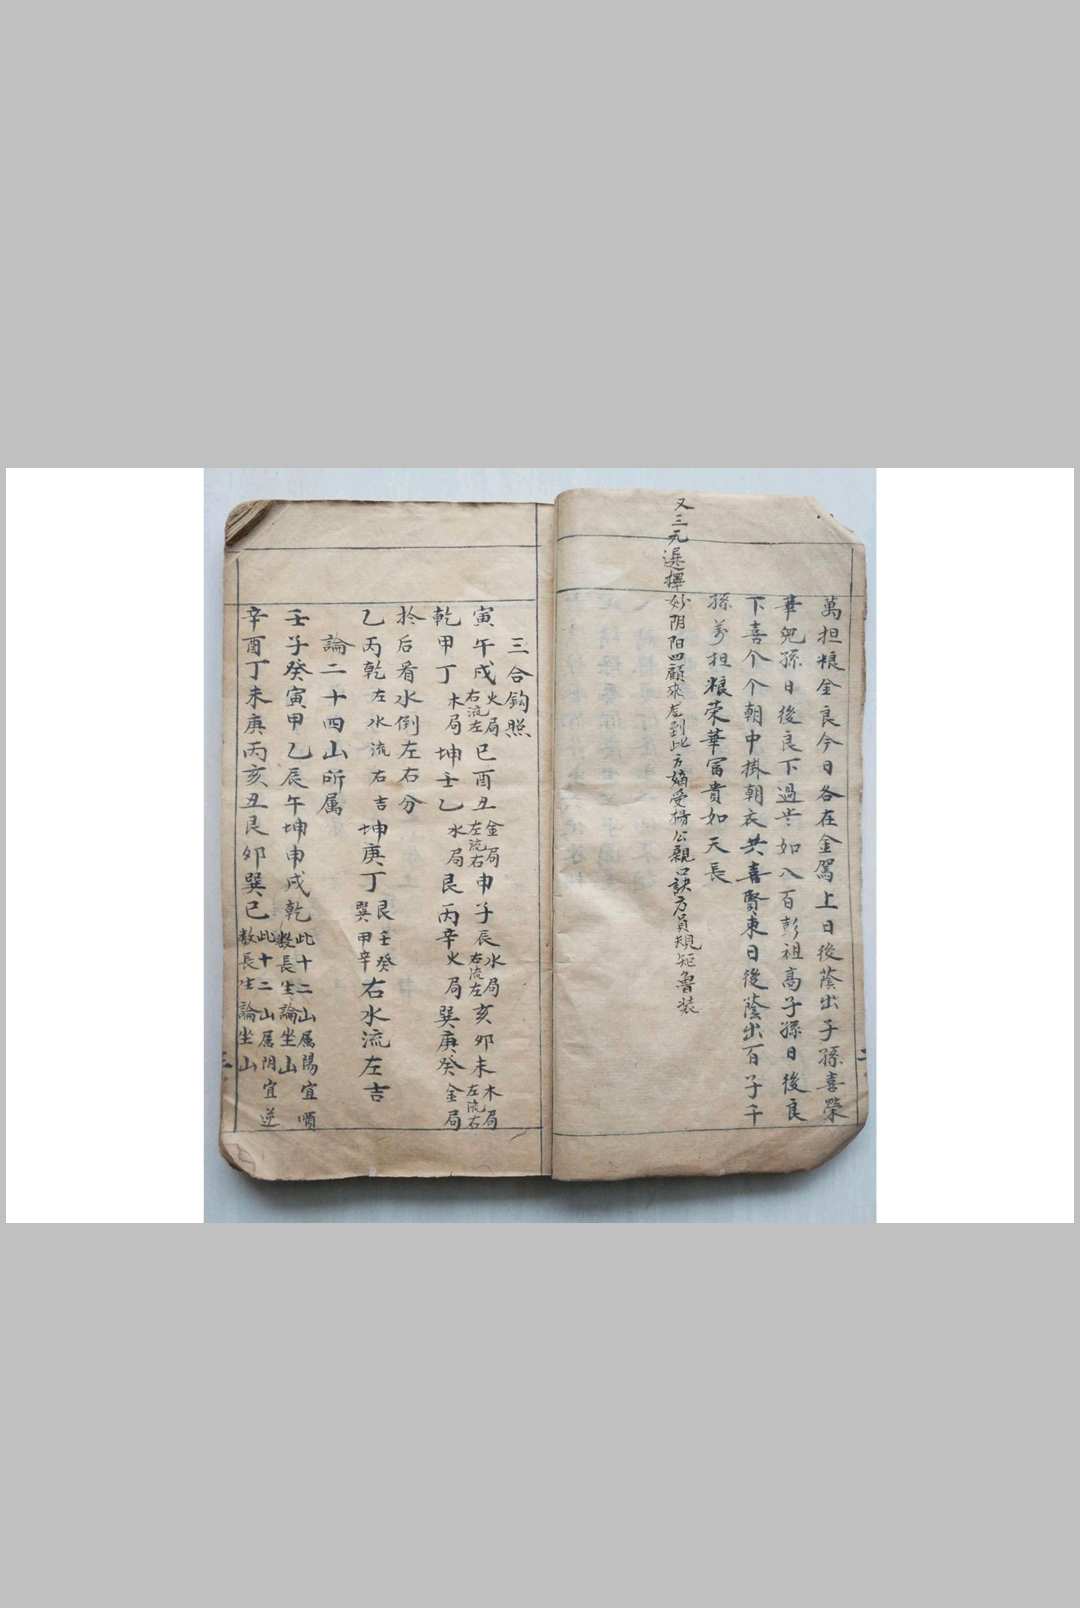 萬担粮金良今日各在金駕上日後蔭出子孫喜榮
華兒孫日後良下過世如八百彭祖高子孫日後良
下喜个个朝中掛朝衣共喜賢東日後蔭出百子千
孫萬担粮荣華冨貴如天長
又三元選擇妙阴阳四顧來左到此方嫡受楊公親口訣方員規矩魯装
三合鈎照
寅午戌火局右流左巳酉丑金局左流右申子辰水局右流左亥卯未木局左流右
乾甲丁木局坤壬乙水局艮丙辛火局巽庚癸金局
扵后看水倒左右分
乙丙乾左水流右吉坤庚丁艮壬癸巽甲辛右水流左吉
論二十四山所属
壬子癸寅甲乙辰午坤申戌乾此十二山属陽宜順数長生論坐山
辛酉丁未庚丙亥丑艮夘巽巳此十二山属阴宜逆数長生論坐山